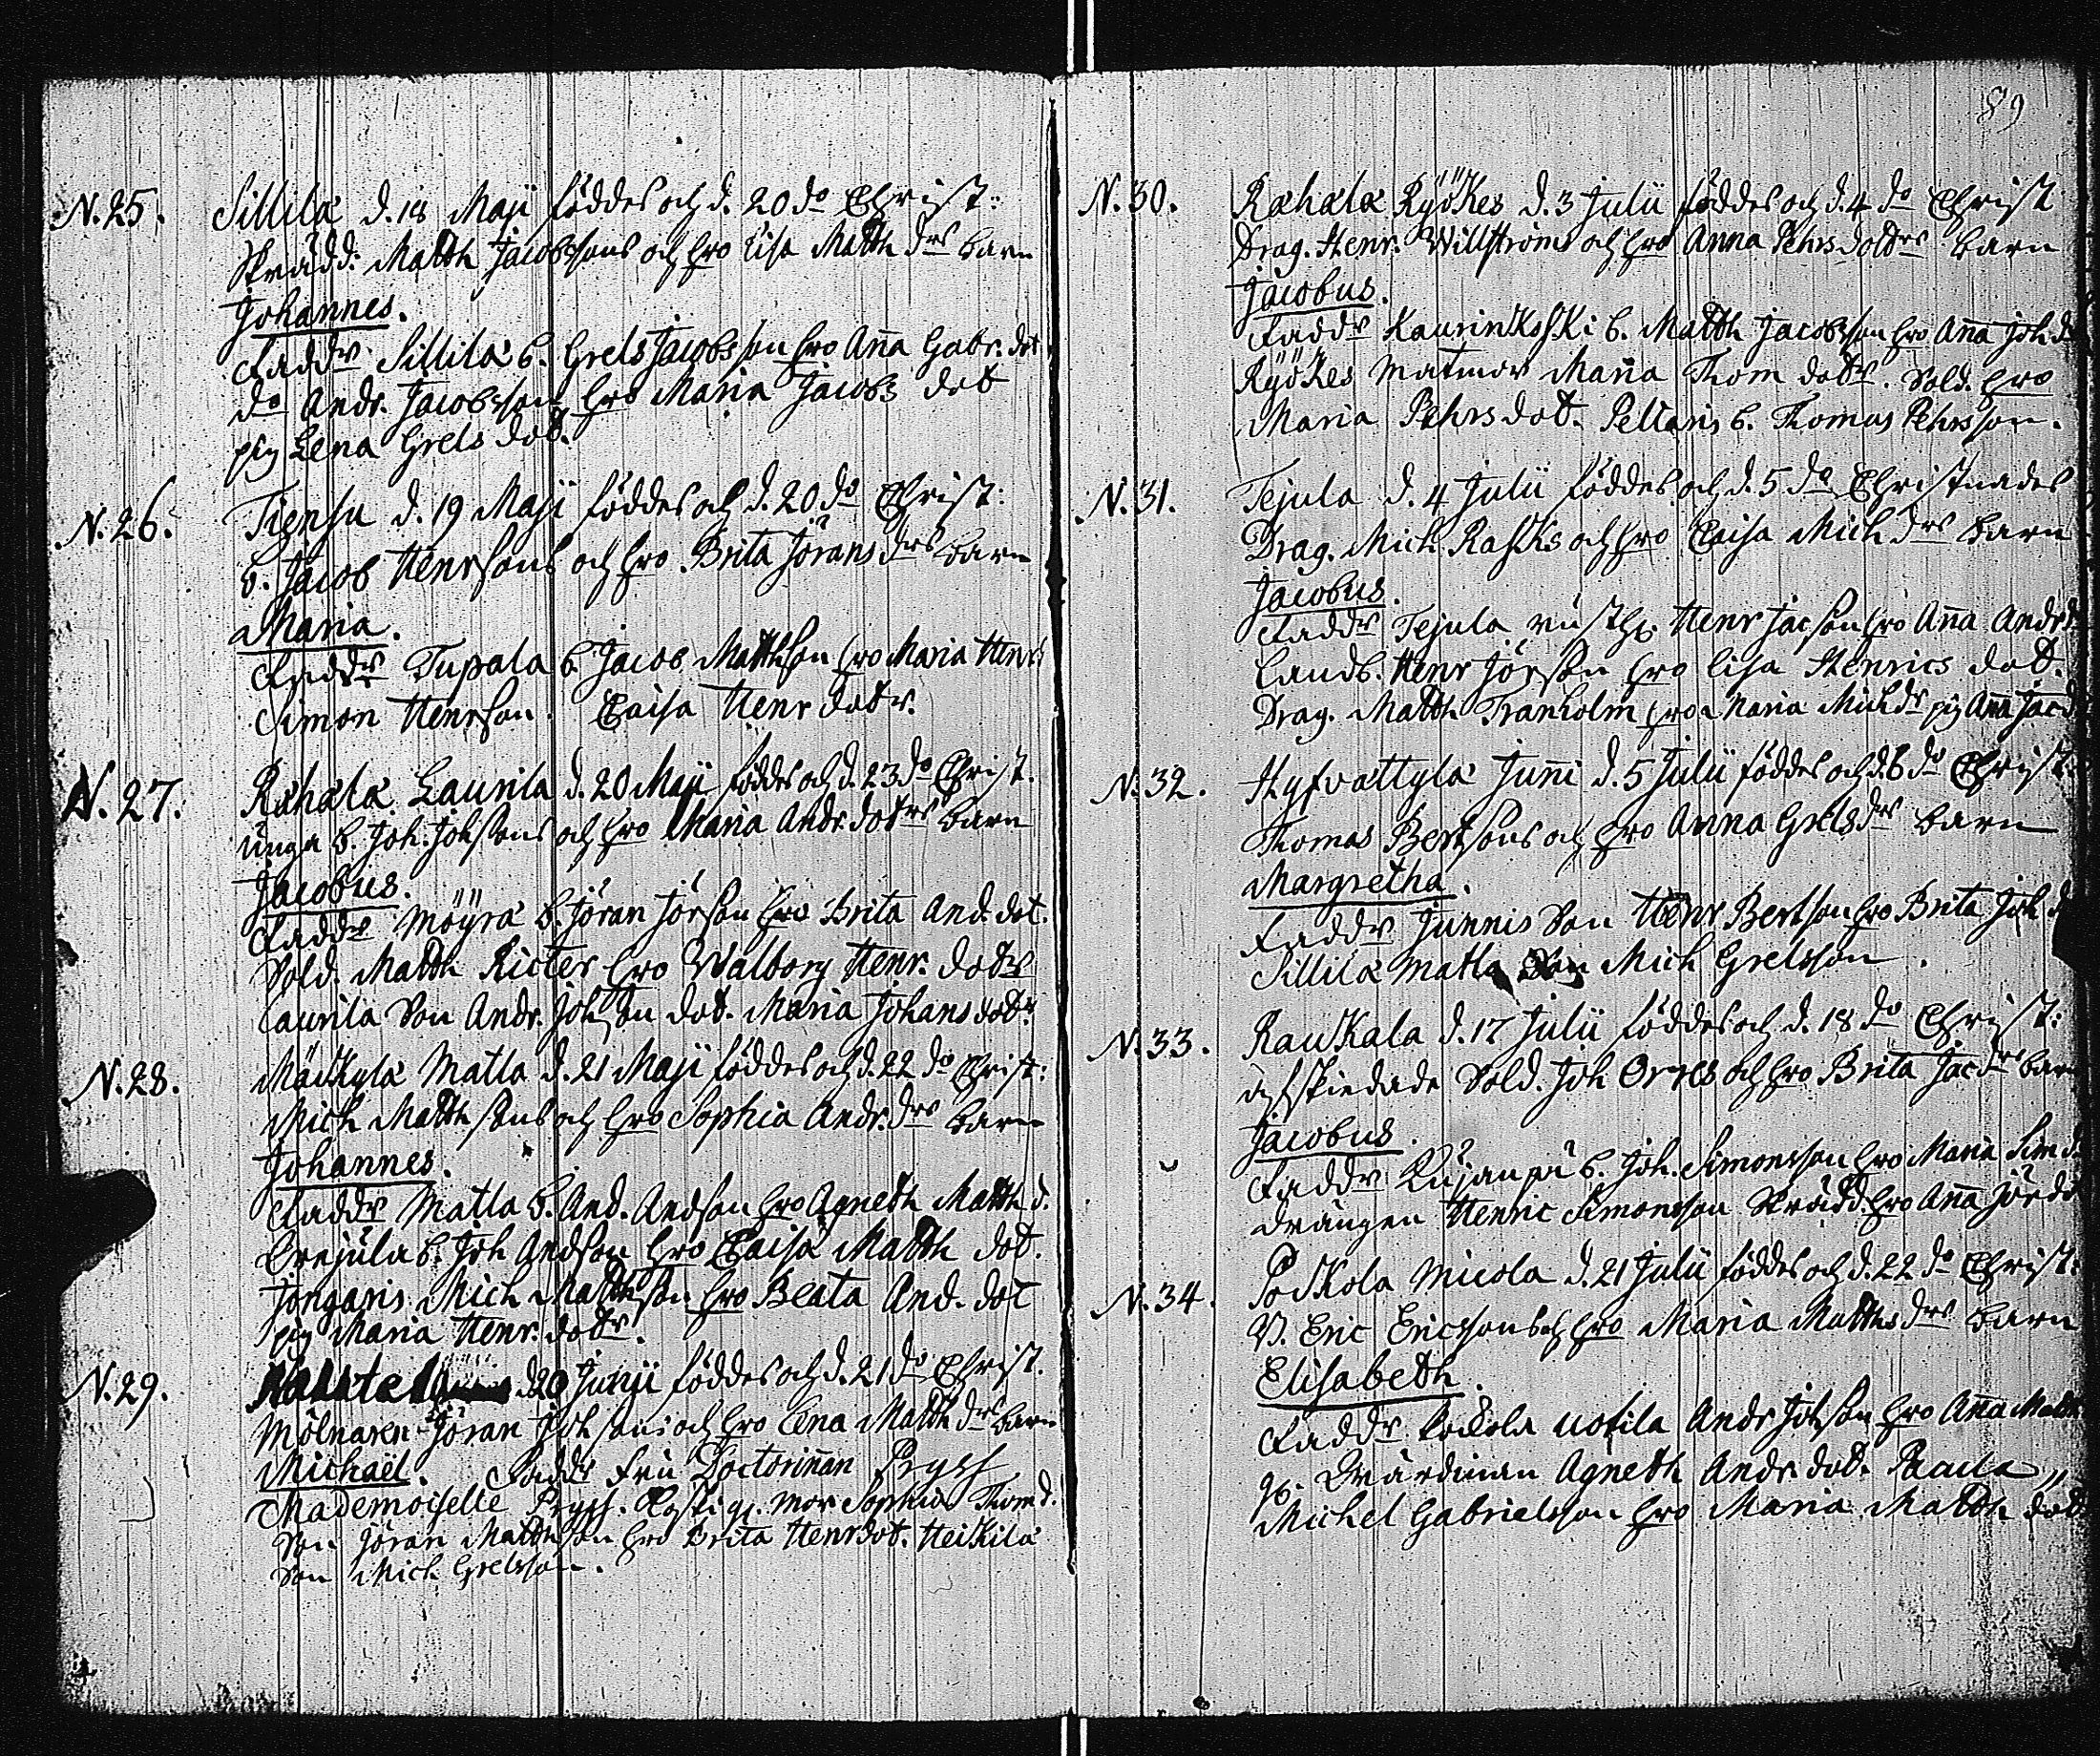 89
N. 25. Sillilä d. 18 Maji föddes och d. 20 do Christ:
Skrädd: Matth Jacobssons och hro Lisa Matth drs barn
Johannes.
Faddr Sillilä b. Grels Jacobsson hro Aña Gabr. dot
do Andr. Jacobsson hro Maria Jacobs dot
pig Lena Grels dot.
N. 26. Tiensu d. 19 Maji föddes och d. 20 do Christ:
b. Jacob Henrsons och hro Brita Jörans drs barn
Maria.
Faddr Tupala b. Jacob Matthson hro Maria Henrs
Simon Henrson. Caisa Henr dotr.
N. 27. Rahala Laurila d. 20 Maji föddes och d. 23 do Christ.
unga b. Joh. Johssons och hro Maria Andr. dotrs barn
Jacobus.
Faddr Möyrä b. Jöran Jörson hro Brita And. dot.
Sold. Matth Ricter hro Walborg Henr. dotr
Laurila Son Andr. Johson dot. Maria Johans dotr
N. 28. Mäukylä Matla d. 21 Maji föddes och d. 22 do Christ:
Mich Matthsons och hro Sophia Andr. drs barn
Johannes.
Faddr Matla b. And. Andson hro Agneth Matth d.
b. Joh Andson hro Caisa Matth dot.
Jongaris Mich Matthson hro Beata And. dot
pig Maria Henr. dotr.
N. 29. d. 20 Junii föddes och d. 21 do Christ.
Mölnaren Jöran Johsons och hro Lena Matth drs barn
Michaël. Faddr Fru Doctoriñan Pryss
Mademoiselle Pryss. mor Sophia Thom d.
Son Jöran Matthson hro Brita Henrdot. Heikilä
Son Mich Grelsson.
N. 30. Rahala Ryökes d. 3 Julii föddes och d. 4 do Christ
Drag. Henr. Willströms och hro Anna Pehrs dotrs barn
Jacobus.
Faddr Kaurinkoski b. Matth Jacobsson hro Aña Joh d
Ryökes matmor Maria Thom dotr. Sold. hro
Maria Pehrs dot. Peltaris b. Thomas Pehrsson.
N. 31. Tejula d. 4 Julii föddes och d. 5 do Christnades
Drag. Mich Rasks och hro Caisa Mich drs barn
Jacobus.
Faddr Tejula rusth. Henr Jacson hro Aña Andr d
Landb. Henr Jörson hro Lisa Henrics dot.
Drag. Matth Tranholm hro Maria Michdr pig Aña Jacd
N. 32. Hyfvättylä Juñi d. 5 Julii föddes och d. 6 do Christ.
Thomas Bertsons och hro Anna Grels drs barn
Margretha.
Faddr Junnis Son Henr Bertson hro Brita Joh d
Sillilä Matla Mich Grelsson.
N. 33. Raukala d. 17 Julii föddes och d. 18 do Christ:
afskiedade Sold. Joh Orres och hro Brita Jac drs barn
Jacobus.
Faddr Kujanpä b. Joh. Simonsson hro Maria Sim d.
drängen Henric Simonsson Skrädd. hro Aña Jör do
N. 34. Påckola Micola d. 21 Julii föddes och d. 22 do Christ:
Eric Ericssons och hro Maria Matths drs barn
Elisabeth.
Faddr Påckola Uotila Andr Johson hro Aña Matth
Wärdinan Agneth Andr. dot.
Michel Gabrielsson hro Maria Matth dot